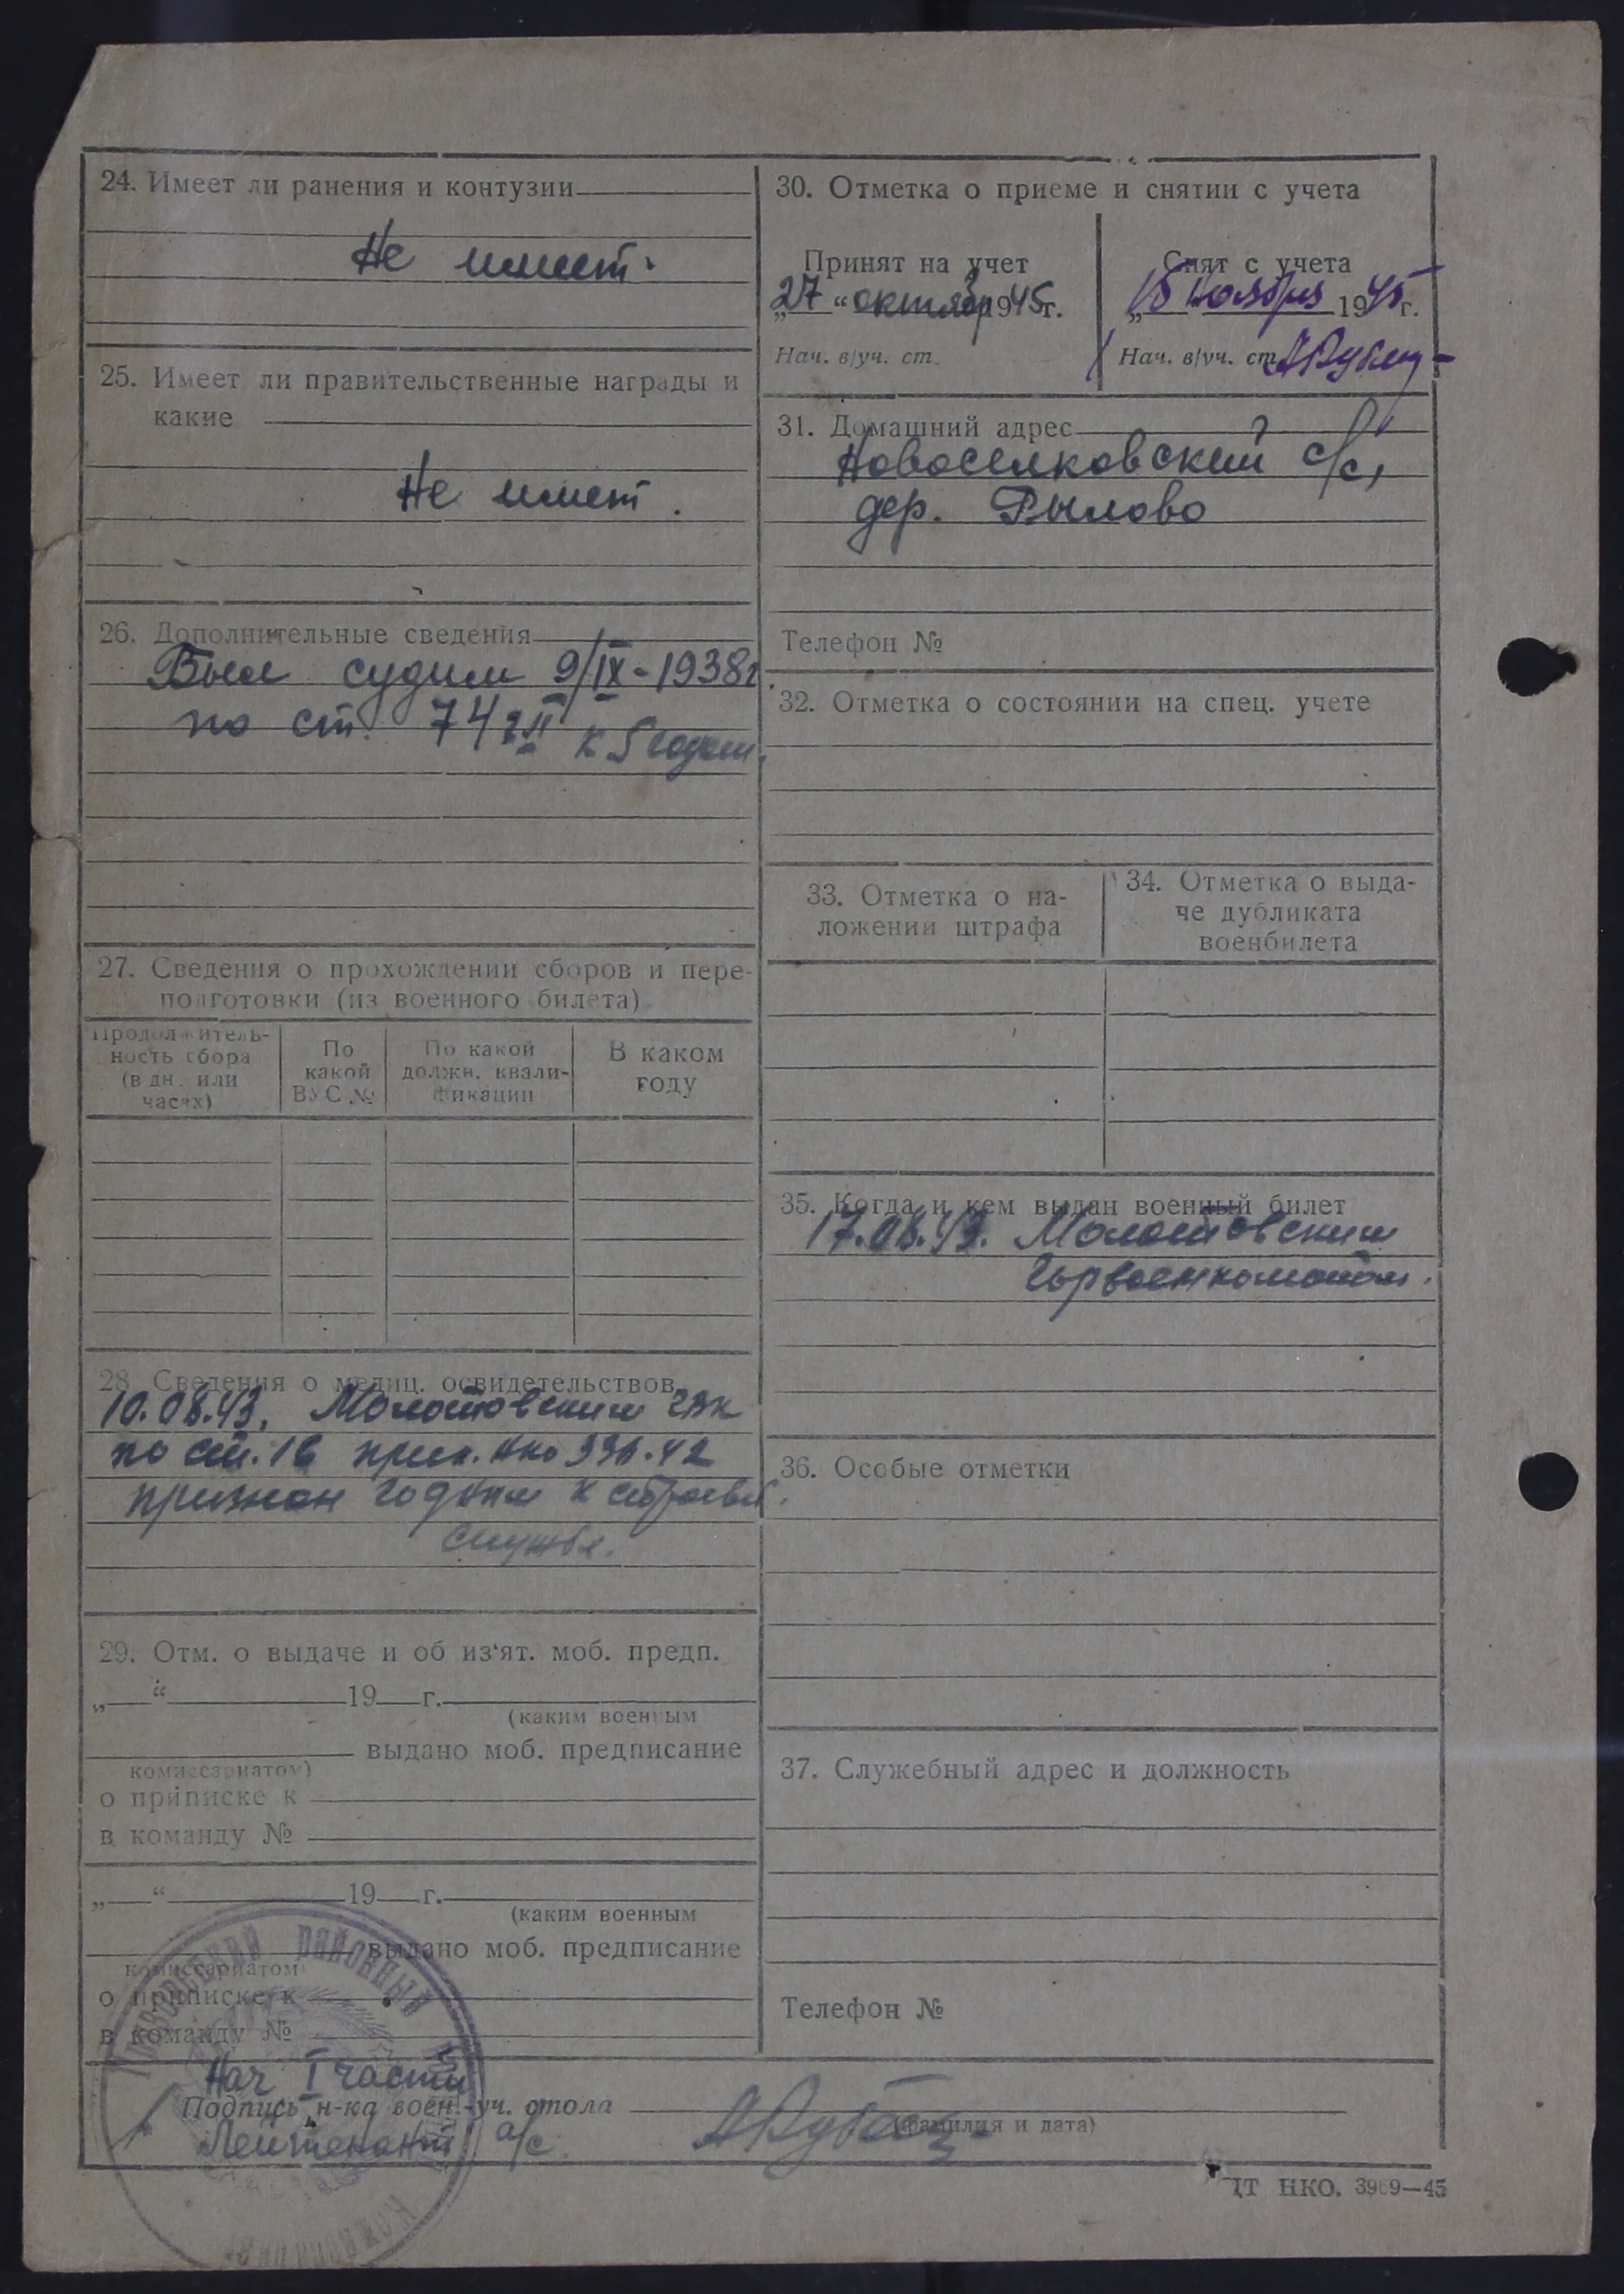 24. Имеет ли ранения и контузии
Не имеет.
25. Имеет ли правительственные награды и
какие
Не имеет.
26. Дополнительные сведения
Был судим 9/IX-1938г
по ст. 74 к 5 годам.
27. Сведения о прохождении сборов и пере-
подготовки (из военного билета)
Продолжитель-
ность сбора
(в дн. или
часах)
По
какой
ВУС №
По какой
должн. квали-
фикации
В каком
году
28. Сведения о медиц. освидетельствов.
10.08.43. Молотовским ГВК
по ст. 1в прик. НКО 336.42
признан годным к строевой
службе.
29. Отм. о выдаче и об из'ят. моб. предп.
„ “ 19 г.
(каким военным
выдано моб. предписание
комиссариатом)
о приписке к
в команду №
„ “ 19 г.
(каким военным
выдано моб. предписание
комиссариатом
о приписке к
в команду №
30. Отметка о приеме и снятии с учета
Принят на учет
„27“ октября 1945г.
Нач. в/уч. ст.
Снят с учета
„15 ноября 1945г.
Нач. в/уч. ст.
31. Домашний адрес
Новоселковский с/с,
дер. Рылово
Телефон №
32. Отметка о состоянии на спец. учете
33. Отметка о на-
ложении штрафа
34. Отметка о выда-
че дубликата
военбилета
35. Когда и кем выдан военный билет
17.08.43. Молотовским
Горвоенкоматом.
36. Особые отметки
37. Служебный адрес и должность
Телефон №
Нач I части
Подпись н-ка воен.-уч. стола
(фамилия и дата)
Лейтенант а/с.
районный
НКО. 3969—45